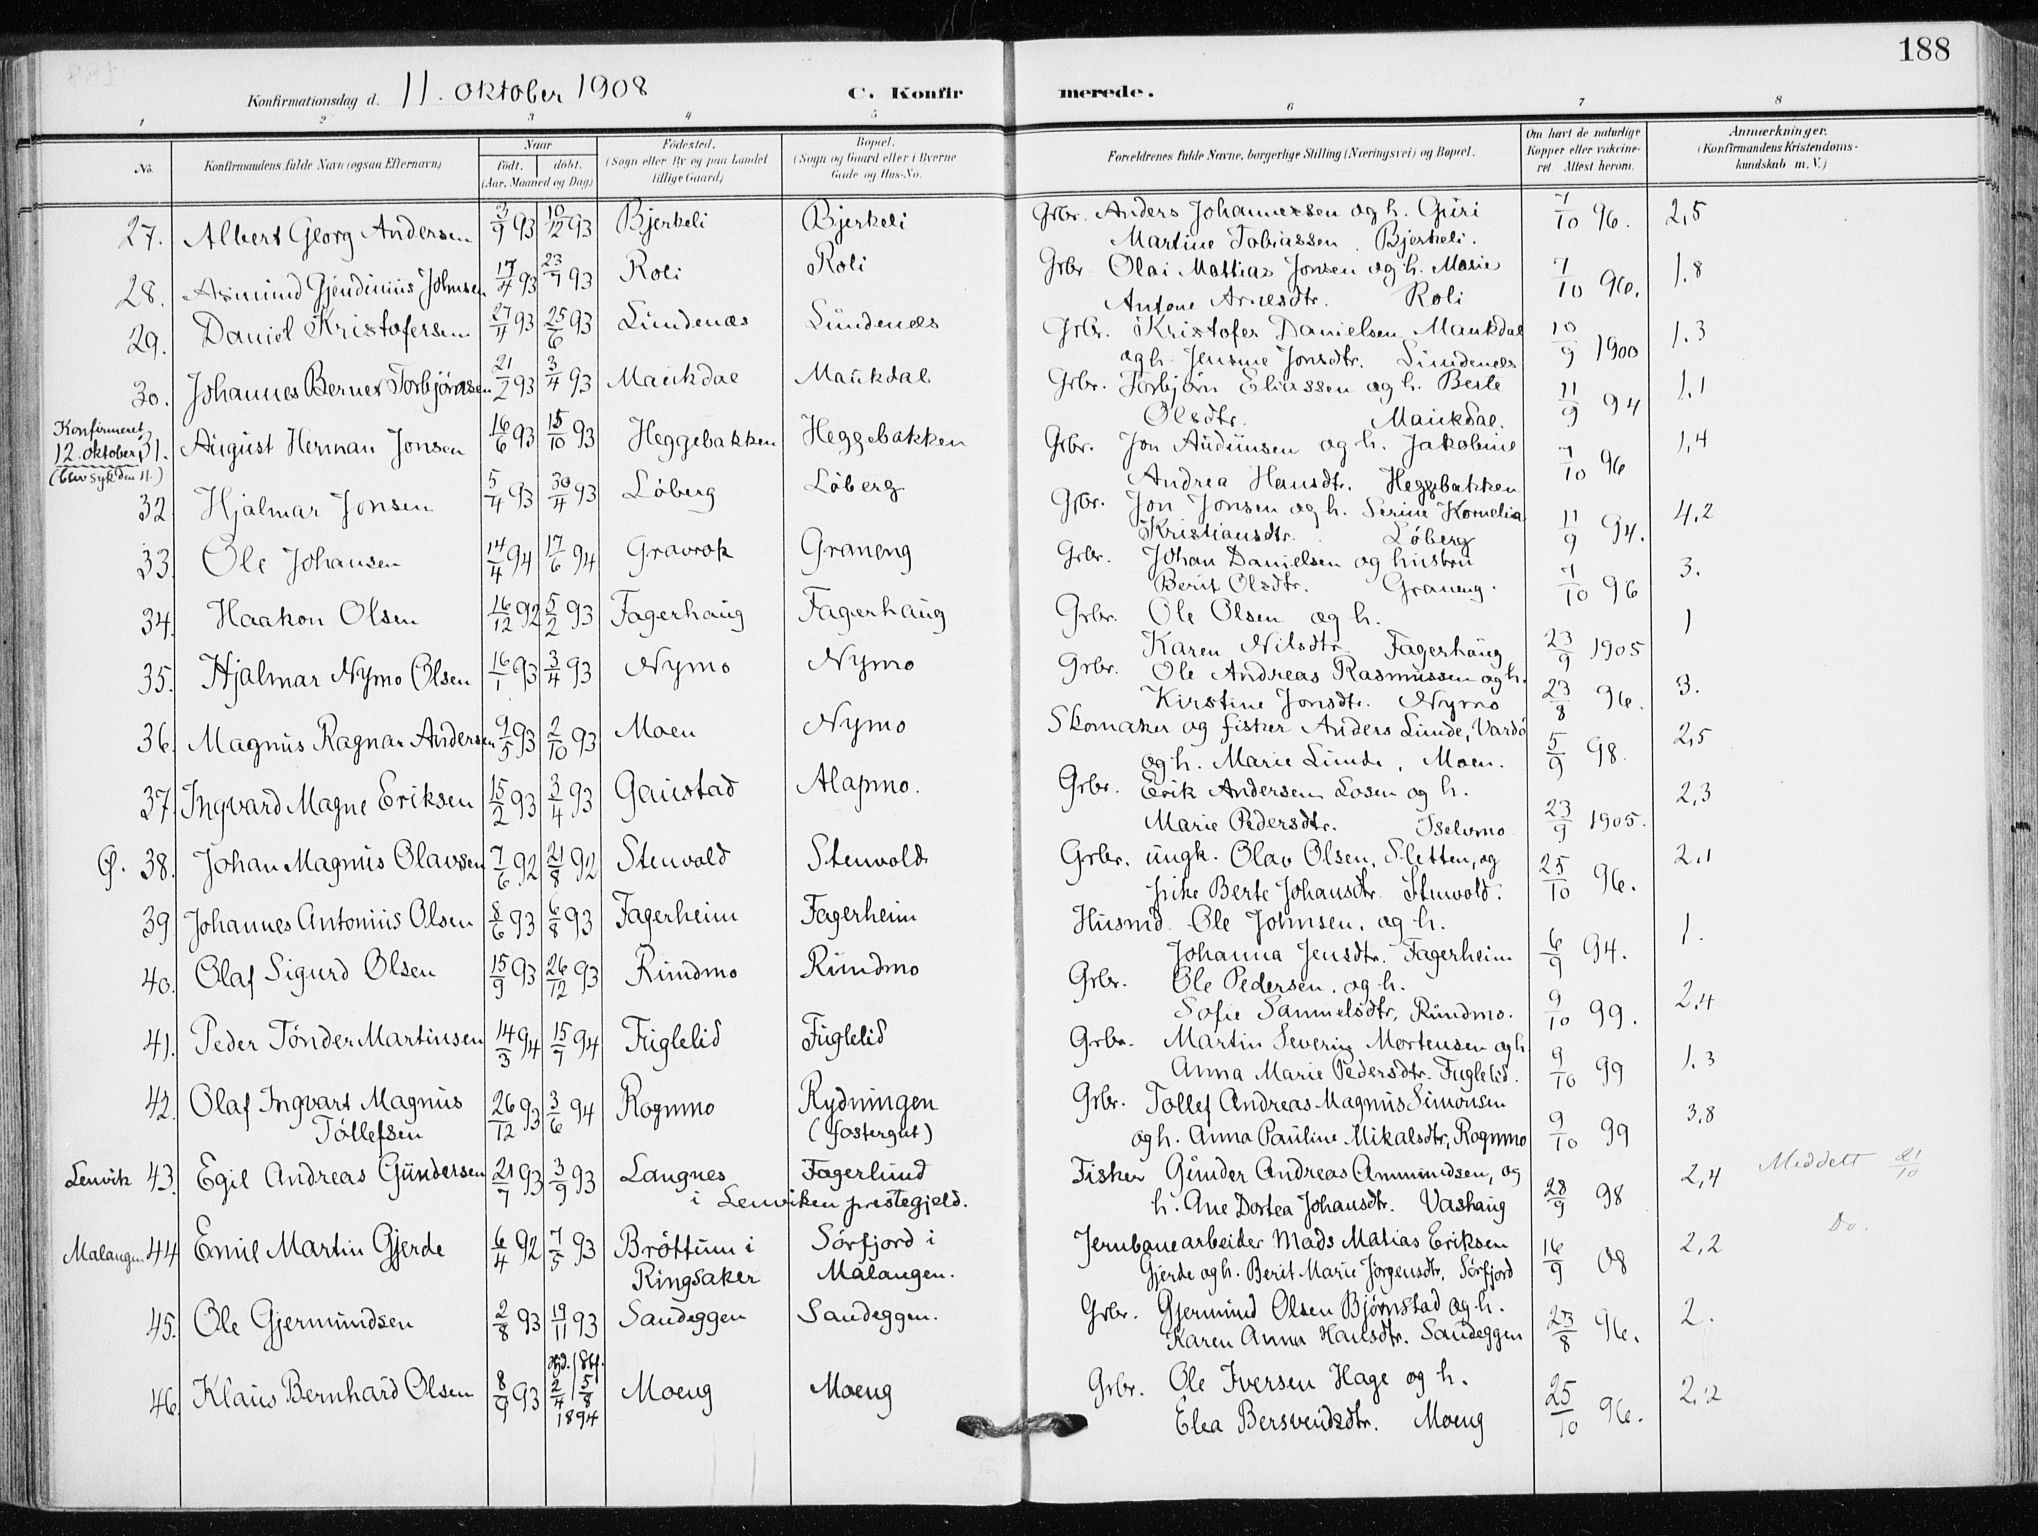 188
Konfirmationsdag d. 11. oktober 1908 C. Konfirmerede.
1 2 3 4 5 6 7 8
No. Konfirmandens fulde Navn (ogsaa Efternavn) Naar født. døbt. (Aar, Maaned og Dag) Fødested. (Sogn eller By og paa Landet tillige Gaard) Bopæl. (Sogn og Gaard eller i Byerne Gade og Hus-No. Forældrenes fulde Navne, borgerlige Stilling (Næringsvei) og Bopæl. Om havt de naturlige Kopper eller vakcineret. Attest herom. Anmærkninger. (Konfirmandens Kristendomskundskab m. V.)
27. Albert Georg Andersen 3/9 93 10/12 93 Bjerkeli Bjerkeli Grbr. Anders Johannessen og h. Guri 7/10 96. 2,5
Martine Tobiassen. Bjerkeli.
28. Asmund Gjendinius Johnsen 17/4 93 23/7 93 Roli Roli Grbr. Olai Mattias Jonsen og h. Marie 7/10 96. 1.8
Antone Arnesdtr. Roli
29. Daniel Kristofersen 27/4 93 25/6 93 Lundenæs Lundenæs Grbr. Kristofer Danielsen Maukdal 10/9 1900 1.3
og h. Jensine Jonsdtr. Lundenæs
30. Johannes Berner Torbjørnsen 21/2 93 3/4 93 Maukdal Maukdal Grbr. Torbjørn Eliassen og h. Berte 11/9 94 1.1
Olsdtr. Maukdal.
Konfirmeret
12. oktober
(blev syk den 11.)
31. August Herman Jonsen 16/6 93 15/10 93 Heggebakken Heggebakken Grbr. Jon Audunsen og h. Jakobine 7/10 96 1,4
Andrea Hansdtr. Heggebakken
32 Hjalmar Jonsen 5/4 93 30/4 93 Løberg Løberg Grbr. Jon Jonsen og h. Serine Kornelia 11/9 94. 4,2
Kristiansdtr. Løberg
33. Ole Johansen 14/4 94 17/6 94 Gravrok Graneng Grbr. Johan Danielsen og hustru 7/10 96 3.
Berit Olsdtr. Graneng.
34. Haakon Olsen 16/12 92 5/2 93 Fagerhaug Fagerhaug Grbr. Ole Olsen og h. 23/9 1905 1
Karen Nilsdtr. Fagerhaug
35. Hjalmar Nymo Olsen 16/1 93 3/4 93 Nymo Nymo Grbr. Ole Andreas Rasmussen og h. 23/8 96. 3.
Kirstine Jonsdtr. Nymo
36. Magnus Ragnar Andersen 9/5 93 2/10 93 Moen Nymo Skomaker og fisker Anders Lunde, Vardø 5/9 98. 2,5
og h. Marie Lunde, Moen.
37. Ingvard Magne Eriksen 15/2 93 3/4 93 Gaustad Alapmo. Grbr. Erik Andersen Losen og h. 23/9 1905. 2,3
Marie Pedersdtr. Iselvmo
Ø. 38. Johan Magnus Olavsen 7/6 92 21/8 92 Stenvold Stenvold Grbr. ungk. Olav Olsen, Sletten, og 25/10 96. 2.1
pike Berte Johansdtr. Stenvold.
39 Johannes Antonius Olsen 8/6 93 6/8 93 Fagerheim Fagerheim Husmd. Ole Johnsen, og h. 6/9 94. 1.
Johanna Jensdtr. Fagerheim
40. Olaf Sigurd Olsen 15/9 93 26/12 93 Rundmo Rundmo Grbr. Ole Pedersen. og h. 9/10 99. 2,4
Sofie Samuelsdtr, Rundmo.
41. Peder Tönder Martinsen 14/3 94 15/7 94 Fuglelid Fuglelid Grbr. Martin Severin Mortensen og h 9/10 99 1.3
Anna Marie Pedersdtr. Fuglelid.
42. Olaf Ingvart Magnus Tollefsen 26/12 93 3/6 94 Rognmo Rydningen (fostergut) Grbr. Tollef Andreas Magnus Simonsen 9/10 99 3,8
og h. Anna Pauline Mikalsdtr, Rognmo
Lenvik 43. Egil Andreas Gundersen 21/7 93 3/9 93 Langnes Fagerlund Fisker Gunder Andreas Ammundsen, og 28/9 98 2,4 Meddelt 21/10
i Lenviken prestegjeld. h. Ane Dortea Johansdtr. Vashaug
Malangen 44 Emil Martin Gjerde 6/4 92 7/5 93 Brøttum i Ringsaker Sørfjord i Malangen. Jernbanearbeider Mads Matias Eriksen 16/9 08 2,2 Do.
Gjerde og h. Berit Marie Jørgensdtr, Sørfjord
45. Ole Gjermundsen 2/8 93 19/11 93 Sandeggen Sandeggen. Grbr. Gjermund Olsen Bjørnstad og h. 23/8 96. 2.
Karen Anna Hansdtr. Sandeggen
46. Klaus Bernhard Olsen 8/9 93 2/4 5/8 1894 Moeng Moeng Grbr. Ole Iversen Hage og h. 25/10 96. 2,2
Elea Bersvendsdtr. Moeng